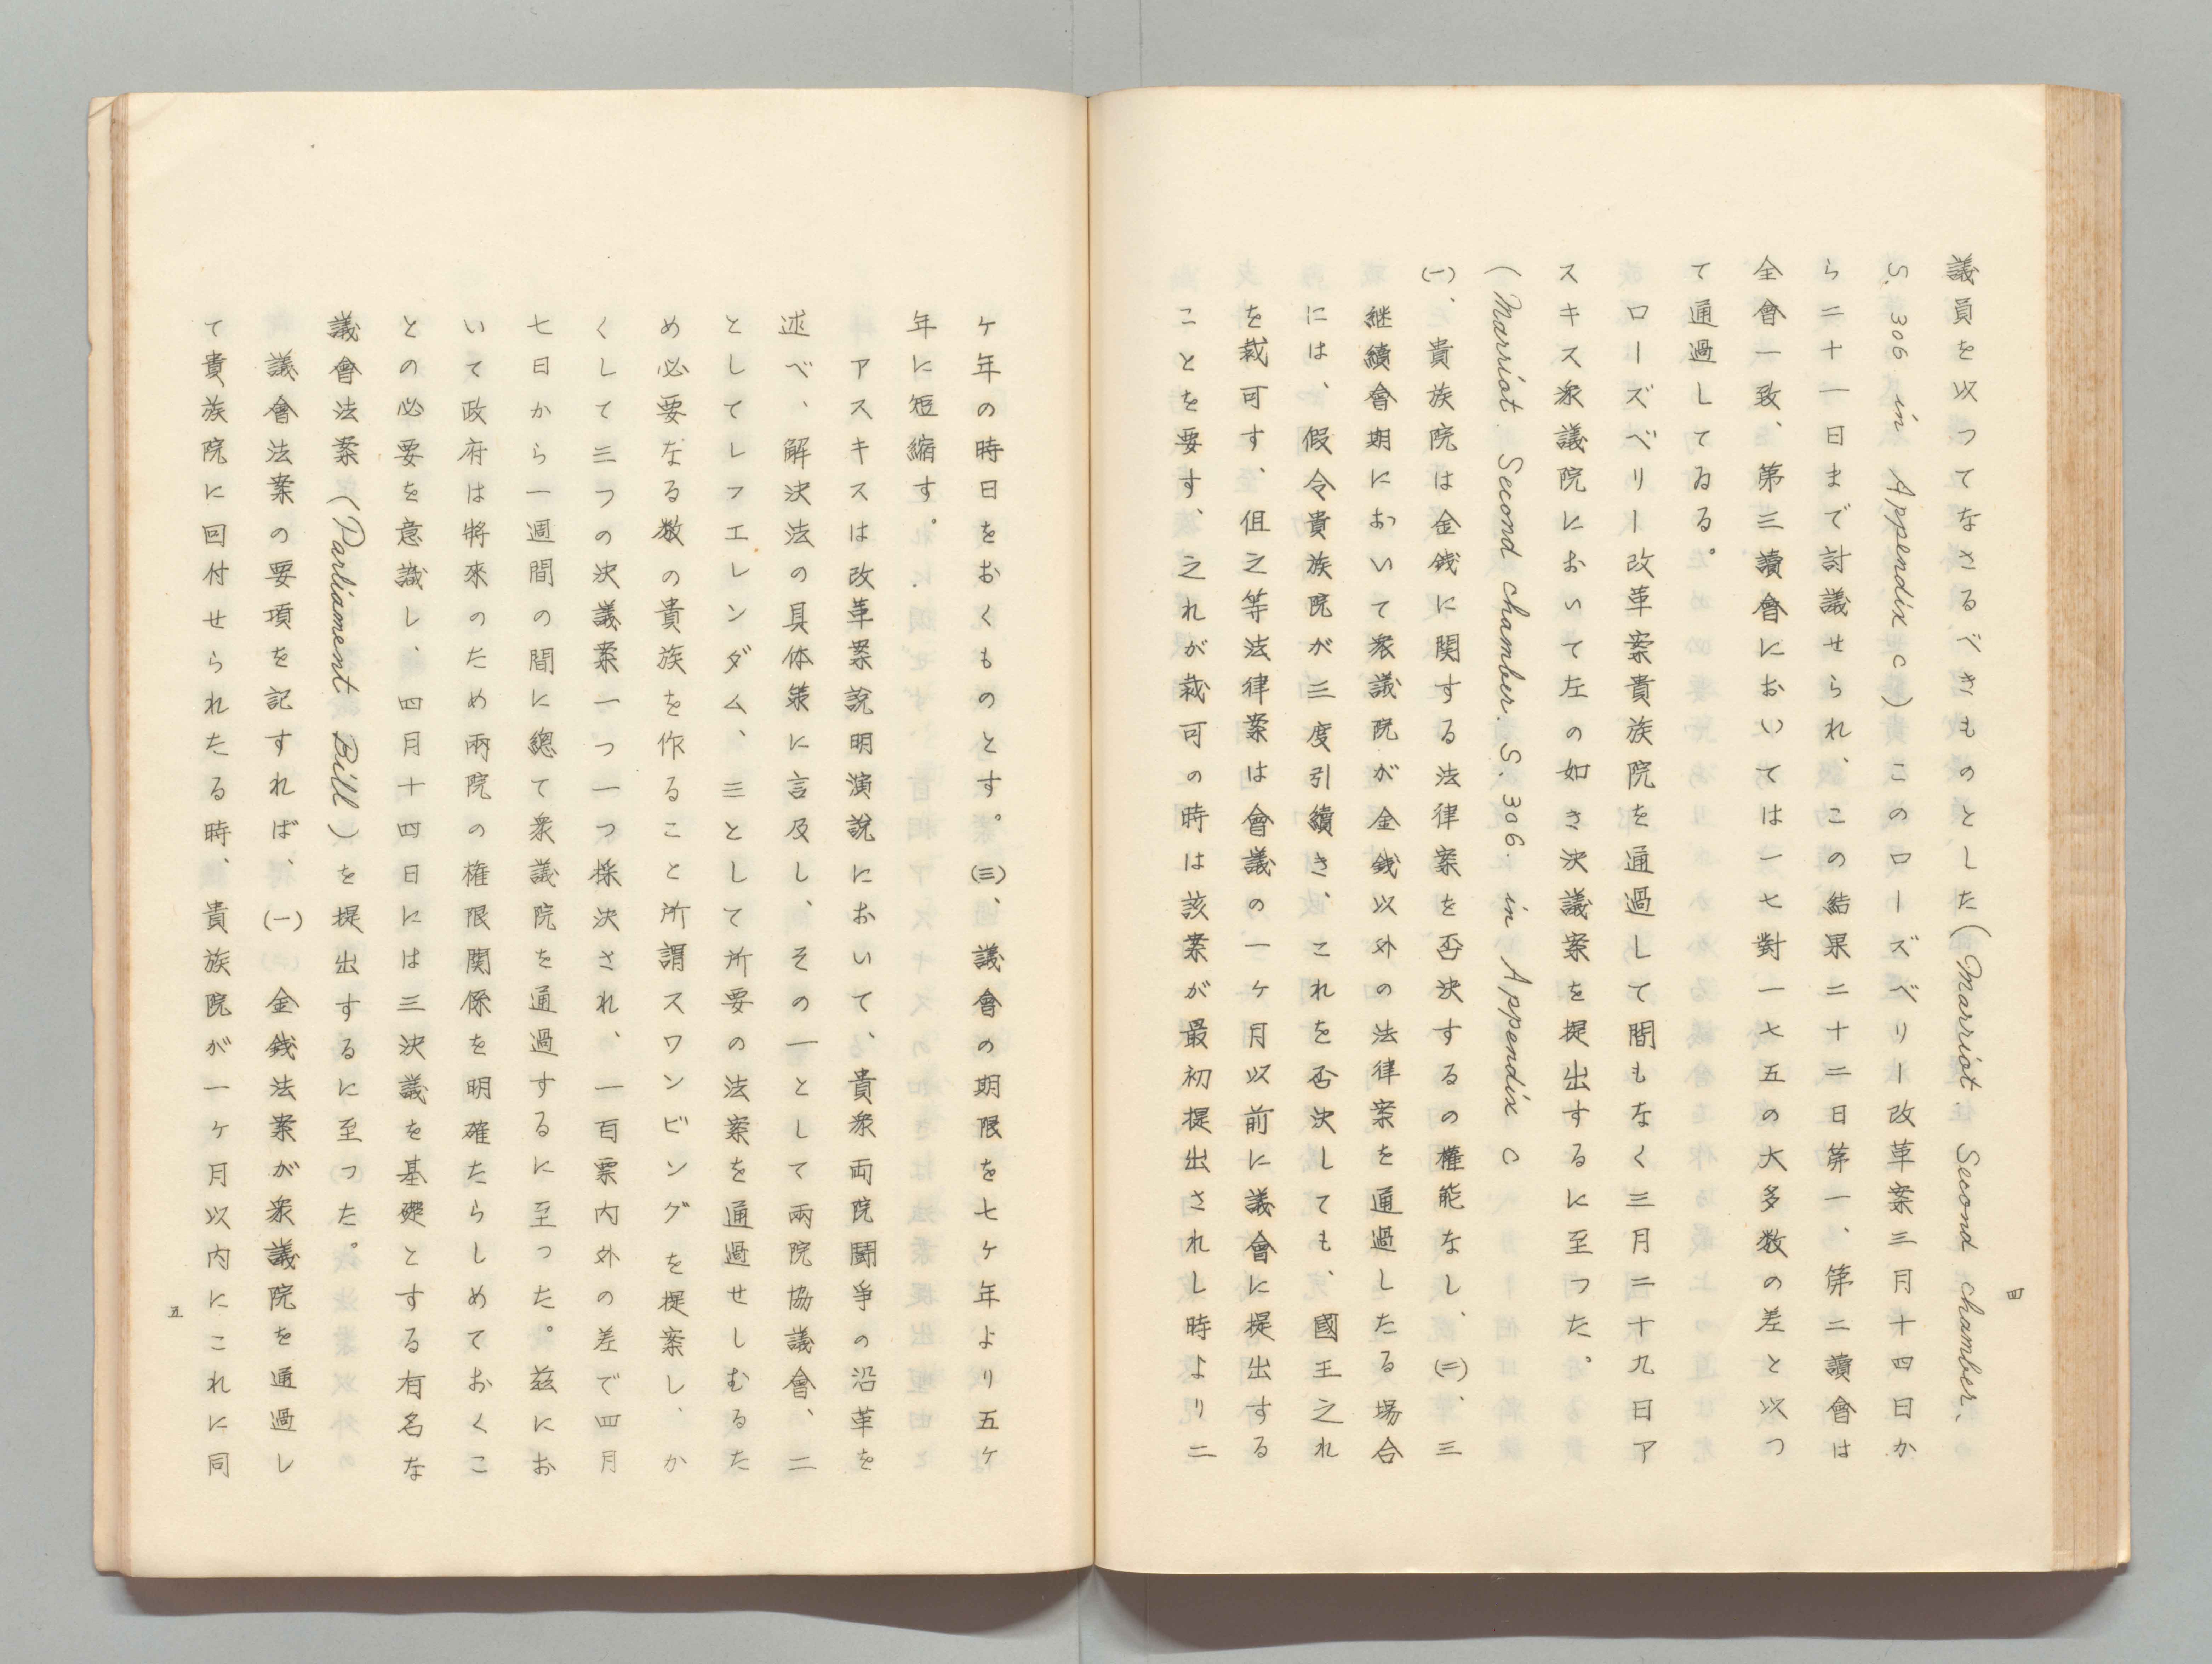 議員を以つてなさるべきものとした(Marriot. Second chamber,
S. 306 in Appendix C)このローズベリー改革案三月十四日か
ら二十一日まで討議せられ、この結果二十二日第一、第二讀會は
全會一致、第三讀會においては一七對一七五の大多数の差と以つ
て通過してゐる。
ローズベリー改革案貴族院を通過して間もなく三月二十九日ア
スキス衆議院において左の如き決議案を提出するに至つた。
(Marriot. Second chamber. S. 306. in Appendix C
(一)、貴族院は金銭に関する法律案を否決するの権能なし、(二)、三
継續會期において衆議院が金銭以外の法律案を通過したる場合
には、假令貴族院が三度引續き、これを否決しても、國王之れ
を裁可す、但之等法律案は會議の一ヶ月以前に議會に提出する
ことを要す、之れが裁可の時は該案が最初提出されし時より二
四
ヶ年の時日をおくものとす。(三)、議會の期限を七ヶ年より五ヶ
年に短縮す。
アスキスは改革案説明演説において、貴衆両院鬪爭の沿革を
述べ、解決法の具体策に言及し、その一として兩院協議會、二
としてレフエレンダム、三として所要の法案を通過せしむるた
め必要なる数の貴族を作ること所謂スワンピングを提案し、か
くして三つの決議案一つ一つ採決され、一百票内外の差で四月
七日から一週間の間に總て衆議院を通過するに至つた。茲にお
いて政府は將來のため兩院の権限関係を明確たらしめておくこ
との必要を意識し、四月十四日には三決議を基礎とする有名な
議會法案(Parliament Bill)を提出するに至つた。
議會法案の要項を記すれば、(一)金銭法案が衆議院を通過し
て貴族院に回付せられたる時、貴族院が一ヶ月以内にこれに同
五